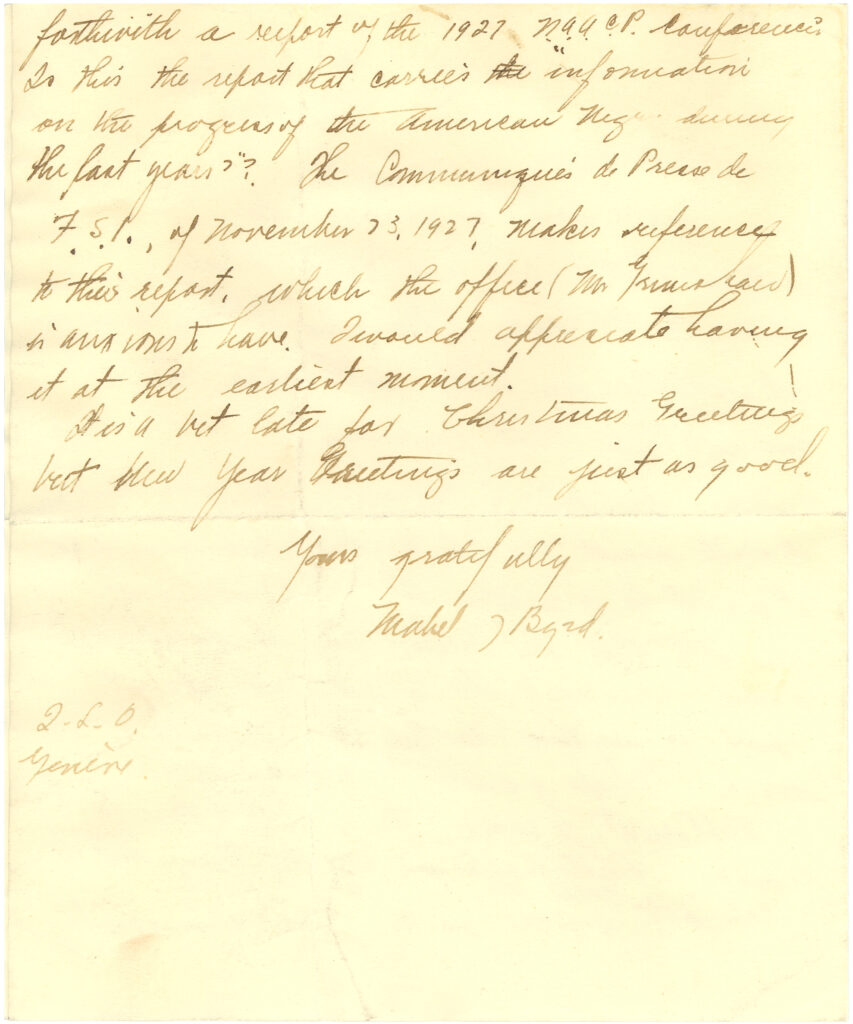 forthwith a report of the 1927 N.A.A.C.P. Conferences.
Is this the report that carries the "information
on the progress of the American Negro during
the last years"? The Communiqués de Presse de
F.S.I., of November 23, 1927, makes reference
to this report, which the office (Mr Grimshaw)
is anxious to have. I would appreciate having
it at the earliest moment.
It is a bit late for Christmas Greetings
but New Year Greetings are just as good.
Yours gratefully
Mabel J Byrd.
I-L-O.
Genève.